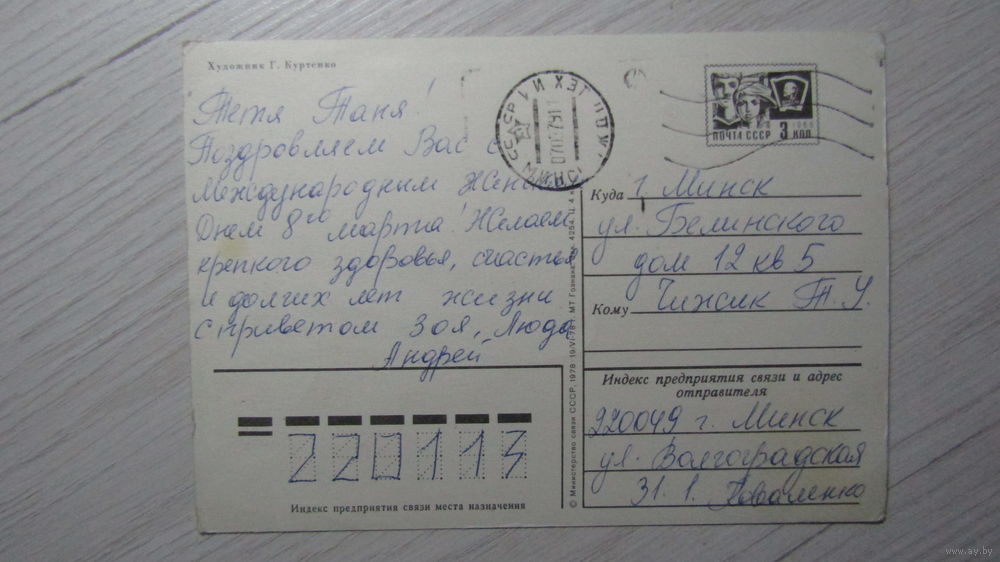 Художник Г. Куртенко
Тетя Таня!
Поздровляем Вас с
Международным Женск
Днем 8го марта! Желаем
крепкого здоровья, счастья
и долгих лет жизни
с приветом Зоя, Люда
Андрей
ПОЧТА СССР 3 КОП
Куда г. Минск
ул. Белинского
дом 12 кв 5
Кому Чижик Т. У.
Индекс предприятия связи и адрес
отправителя
220049 г. Минск
ул. Волгоградская
31. 1. Коваленко
220113
Индекс предприятия связи места назначения
© Министерство связи СССР, 1978
www.ay.by